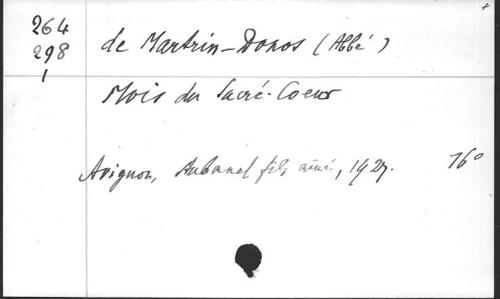 264
298
1
de Martrin-Donos (Abbé)
Mois du Sacré-Coeur
Avignon, Aubanel fils aîné, 1927. 16°